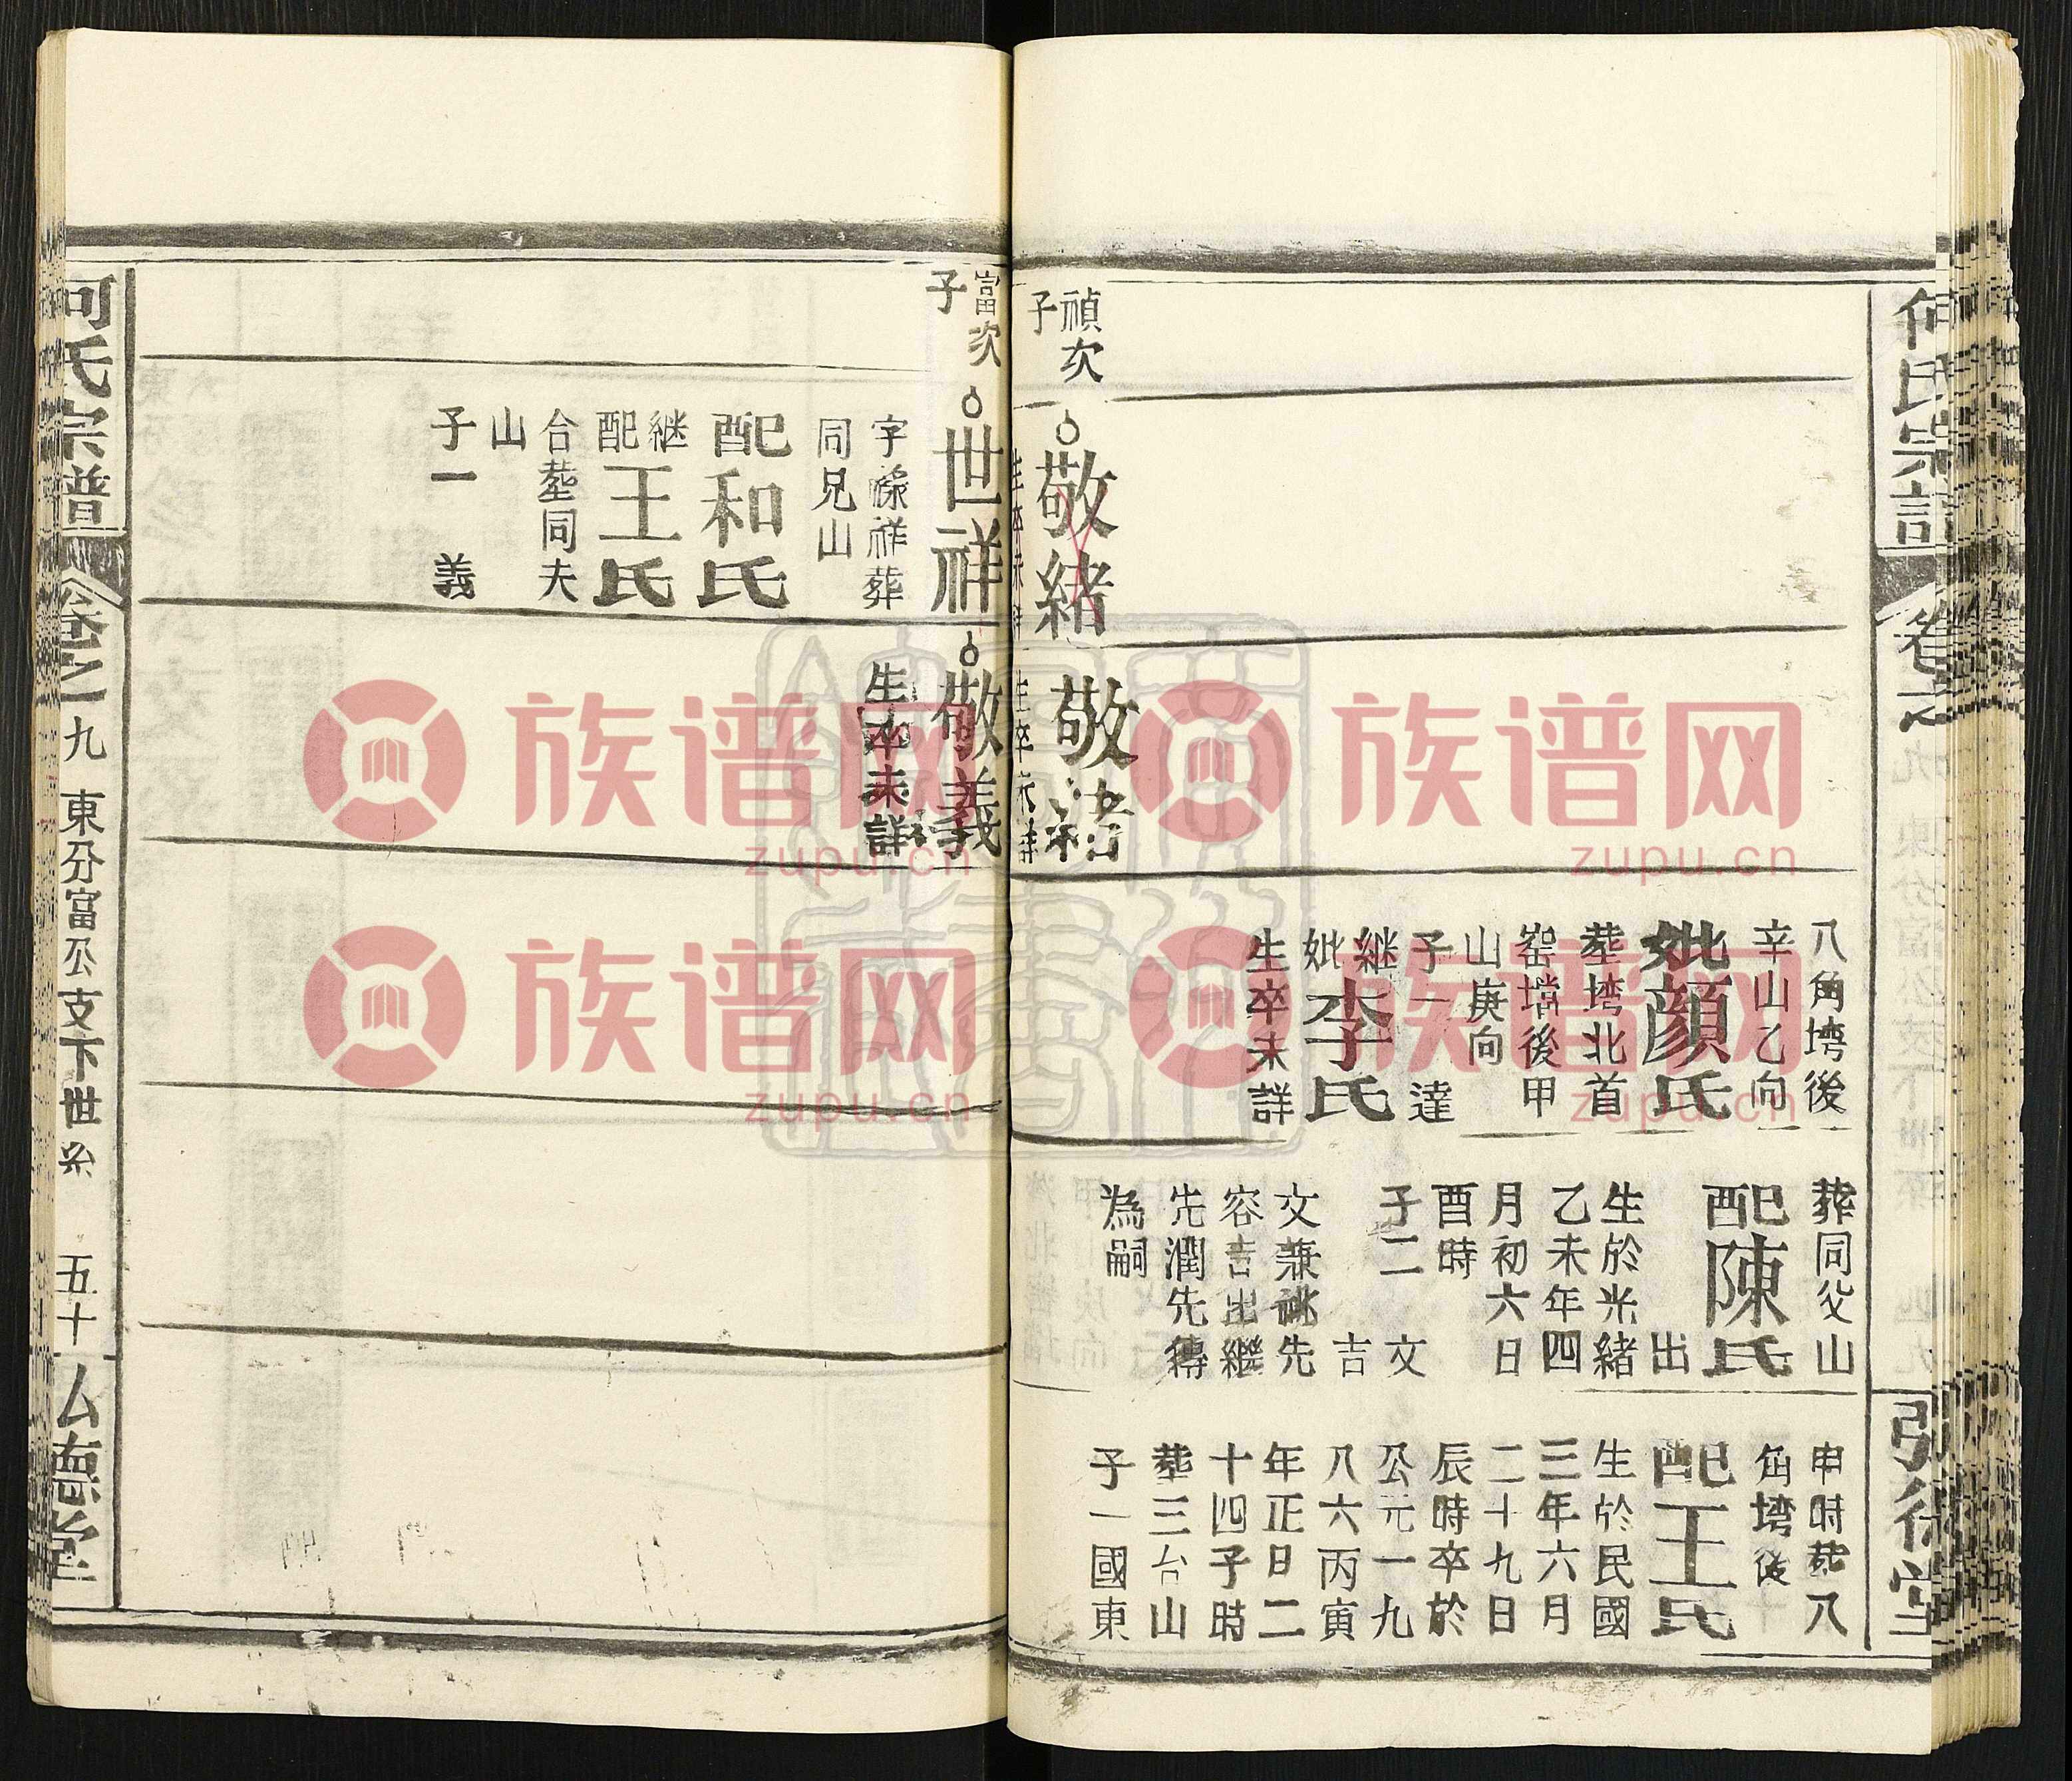 何氏宗譜
卷之
八角塆後
辛山乙向
妣顔氏
塟塆北首
窑壋後甲
山庚向
子一 達
継妣李氏
生卒未詳
葬同父山
配陳氏 出
生於光緒
乙未年四
月初六日
酉時
子二 文
吉
文兼祧先
容吉出繼
先潤先傳
為嗣
申時葬八
角塆後
配王氏
生於民國
三年六月
二十九日
辰時卒於
公元一九
八六丙寅
年正日二
十四子時
塟三台山
子一國東
禎次子
敬緒
生卒未詳
敬緒
生卒未詳
富次子
世祥
字祿祥葬
同兄山
配和氏
継配王氏
合塟同夫
山
子一 義
敬義
生卒未詳
河氏宗譜
卷之九 東分富公支下世系 五十
弘德堂
族谱网
zupu.cn
族谱网
zupu.cn
族谱网
zupu.cn
族谱网
zupu.cn